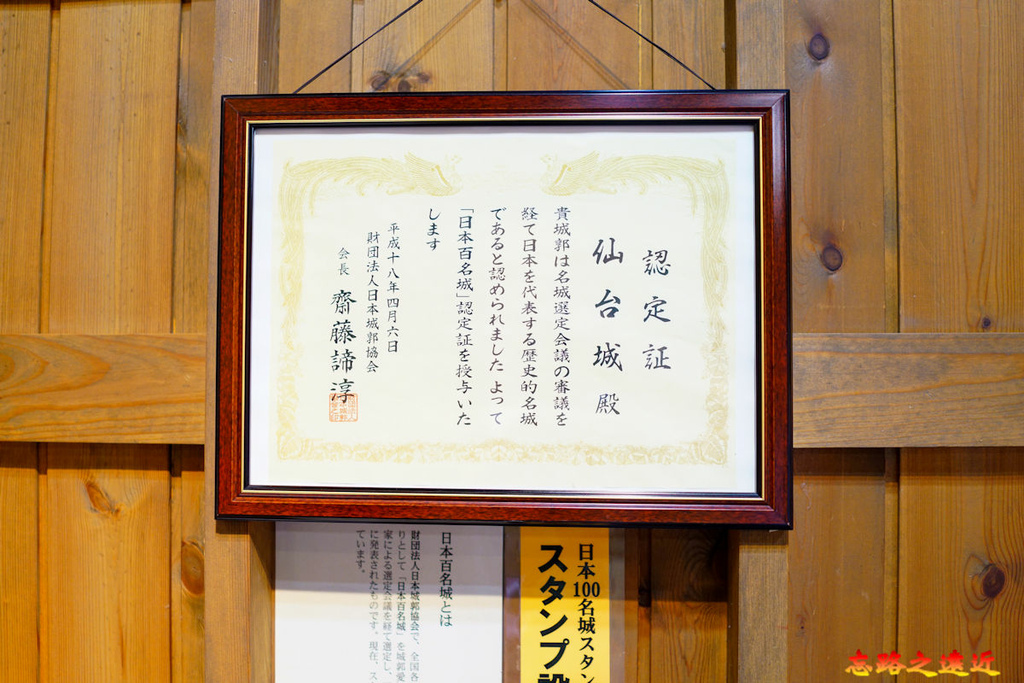 認定証
仙台城 殿
貴城郭は名城選定会議の審議を
経て日本を代表する歴史的名城
であると認められました よって
「日本百名城」認定証を授与いた
します
平成十八年四月六日
財団法人日本城郭協会
会長 齋藤諦淳
日本100名城スタン
スタンプ設
日本百名城とは
財団法人日本城郭協会で、全国各
りとして「日本百名城」を城郭愛
家による選定会議を経て選定し、
に発表されたものです。現在、ス
ています。
忘路之遠近